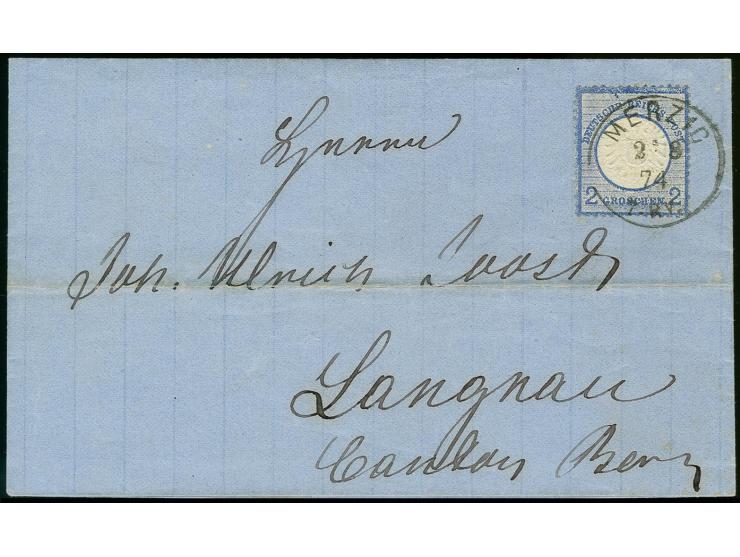 DEUTSCHE REICHS-POST
MERZIG
2 8
74
2 GROSCHEN 2
Herrn
Joh. Ulrich Joost
Langnau
Canton Bern